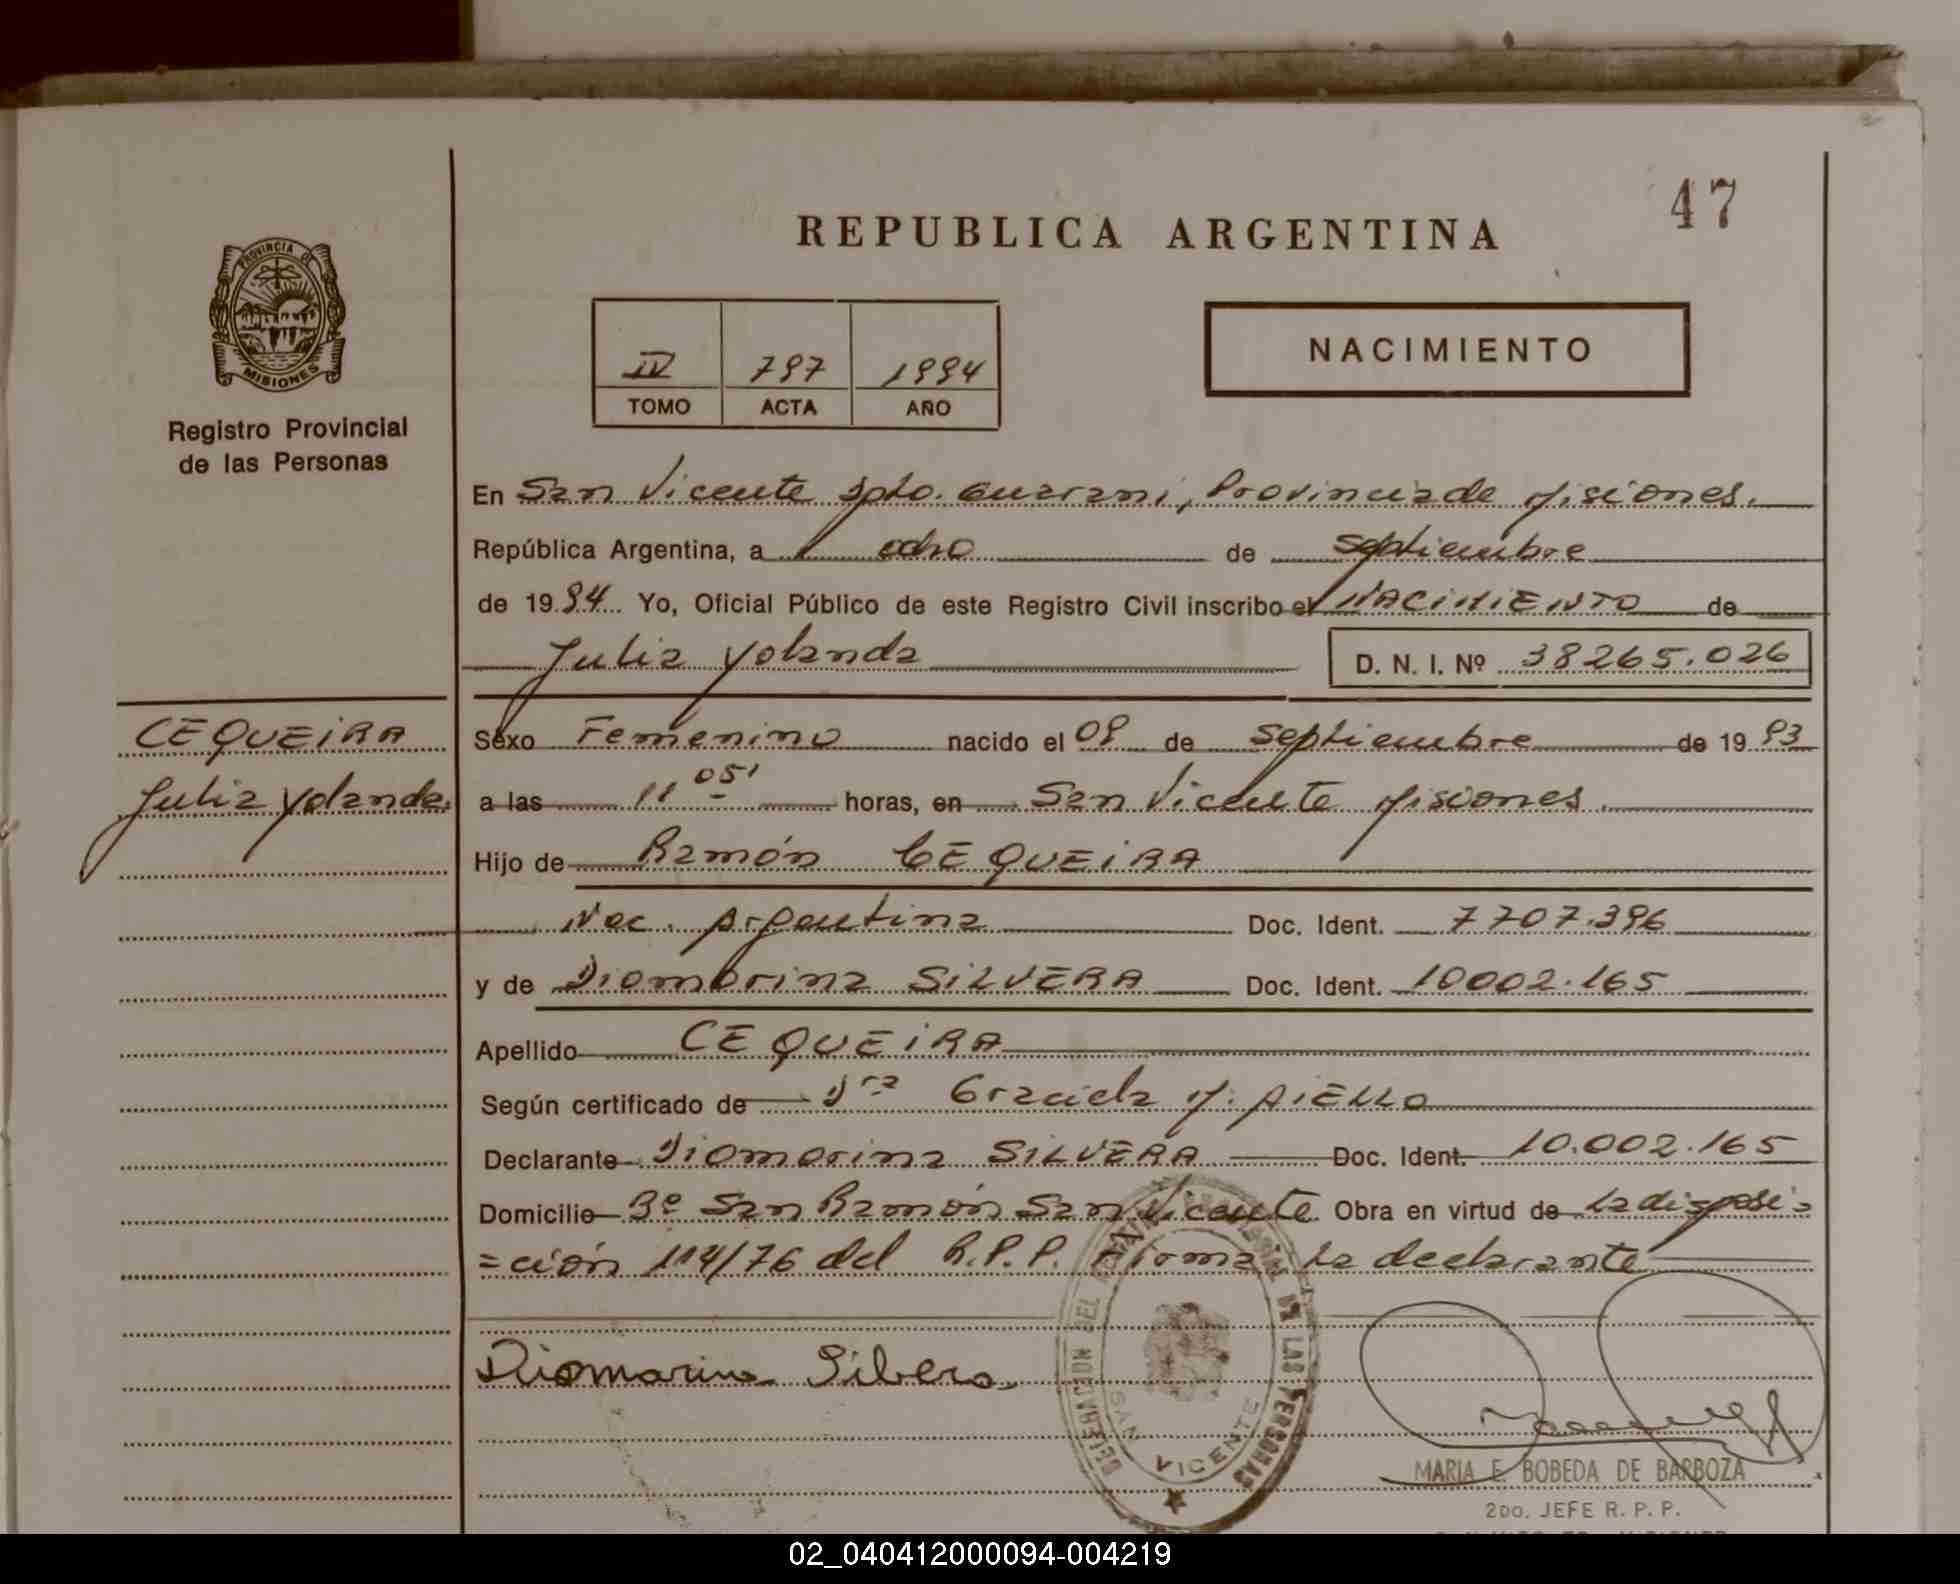 47
REPUBLICA ARGENTINA
PROVINCIA D
MISIONES
Registro Provincial
de las Personas
IV 797 1994
TOMO ACTA AÑO
NACIMIENTO
En San Vicente Dpto. Guarani, Provincia de Misiones.
República Argentina, a ocho de septiembre
de 1994 Yo, Oficial Público de este Registro Civil inscribo el NACIMIENTO de
Julia Yolanda D. N. I. Nº 38265.026
CEQUEIRA
Julia Yolanda.
Sexo Femenino nacido el 09 de septiembre de 1993
a las 11 05' horas, en San Vicente Misiones.
Hijo de Ramón CEQUEIRA
Nac. Argentina Doc. Ident. 7707.396
y de Diomorina SILVERA Doc. Ident. 10002.165
Apellido CEQUEIRA
Según certificado de Dra Graciela M. AIELLO
Declarante Diomorina SILVERA Doc. Ident. 10.002.165
Domicilio Bº San Ramón San Vicente Obra en virtud de la disposi=
=ción 114/76 del R.P.P. Firma la declarante
Diomarina Silbera
DELEGACION DEL LAS PERSONAS
SAN VICENTE
MARIA E. BOBEDA DE BARBOZA
2DO. JEFE R. P. P.
02_040412000094-004219